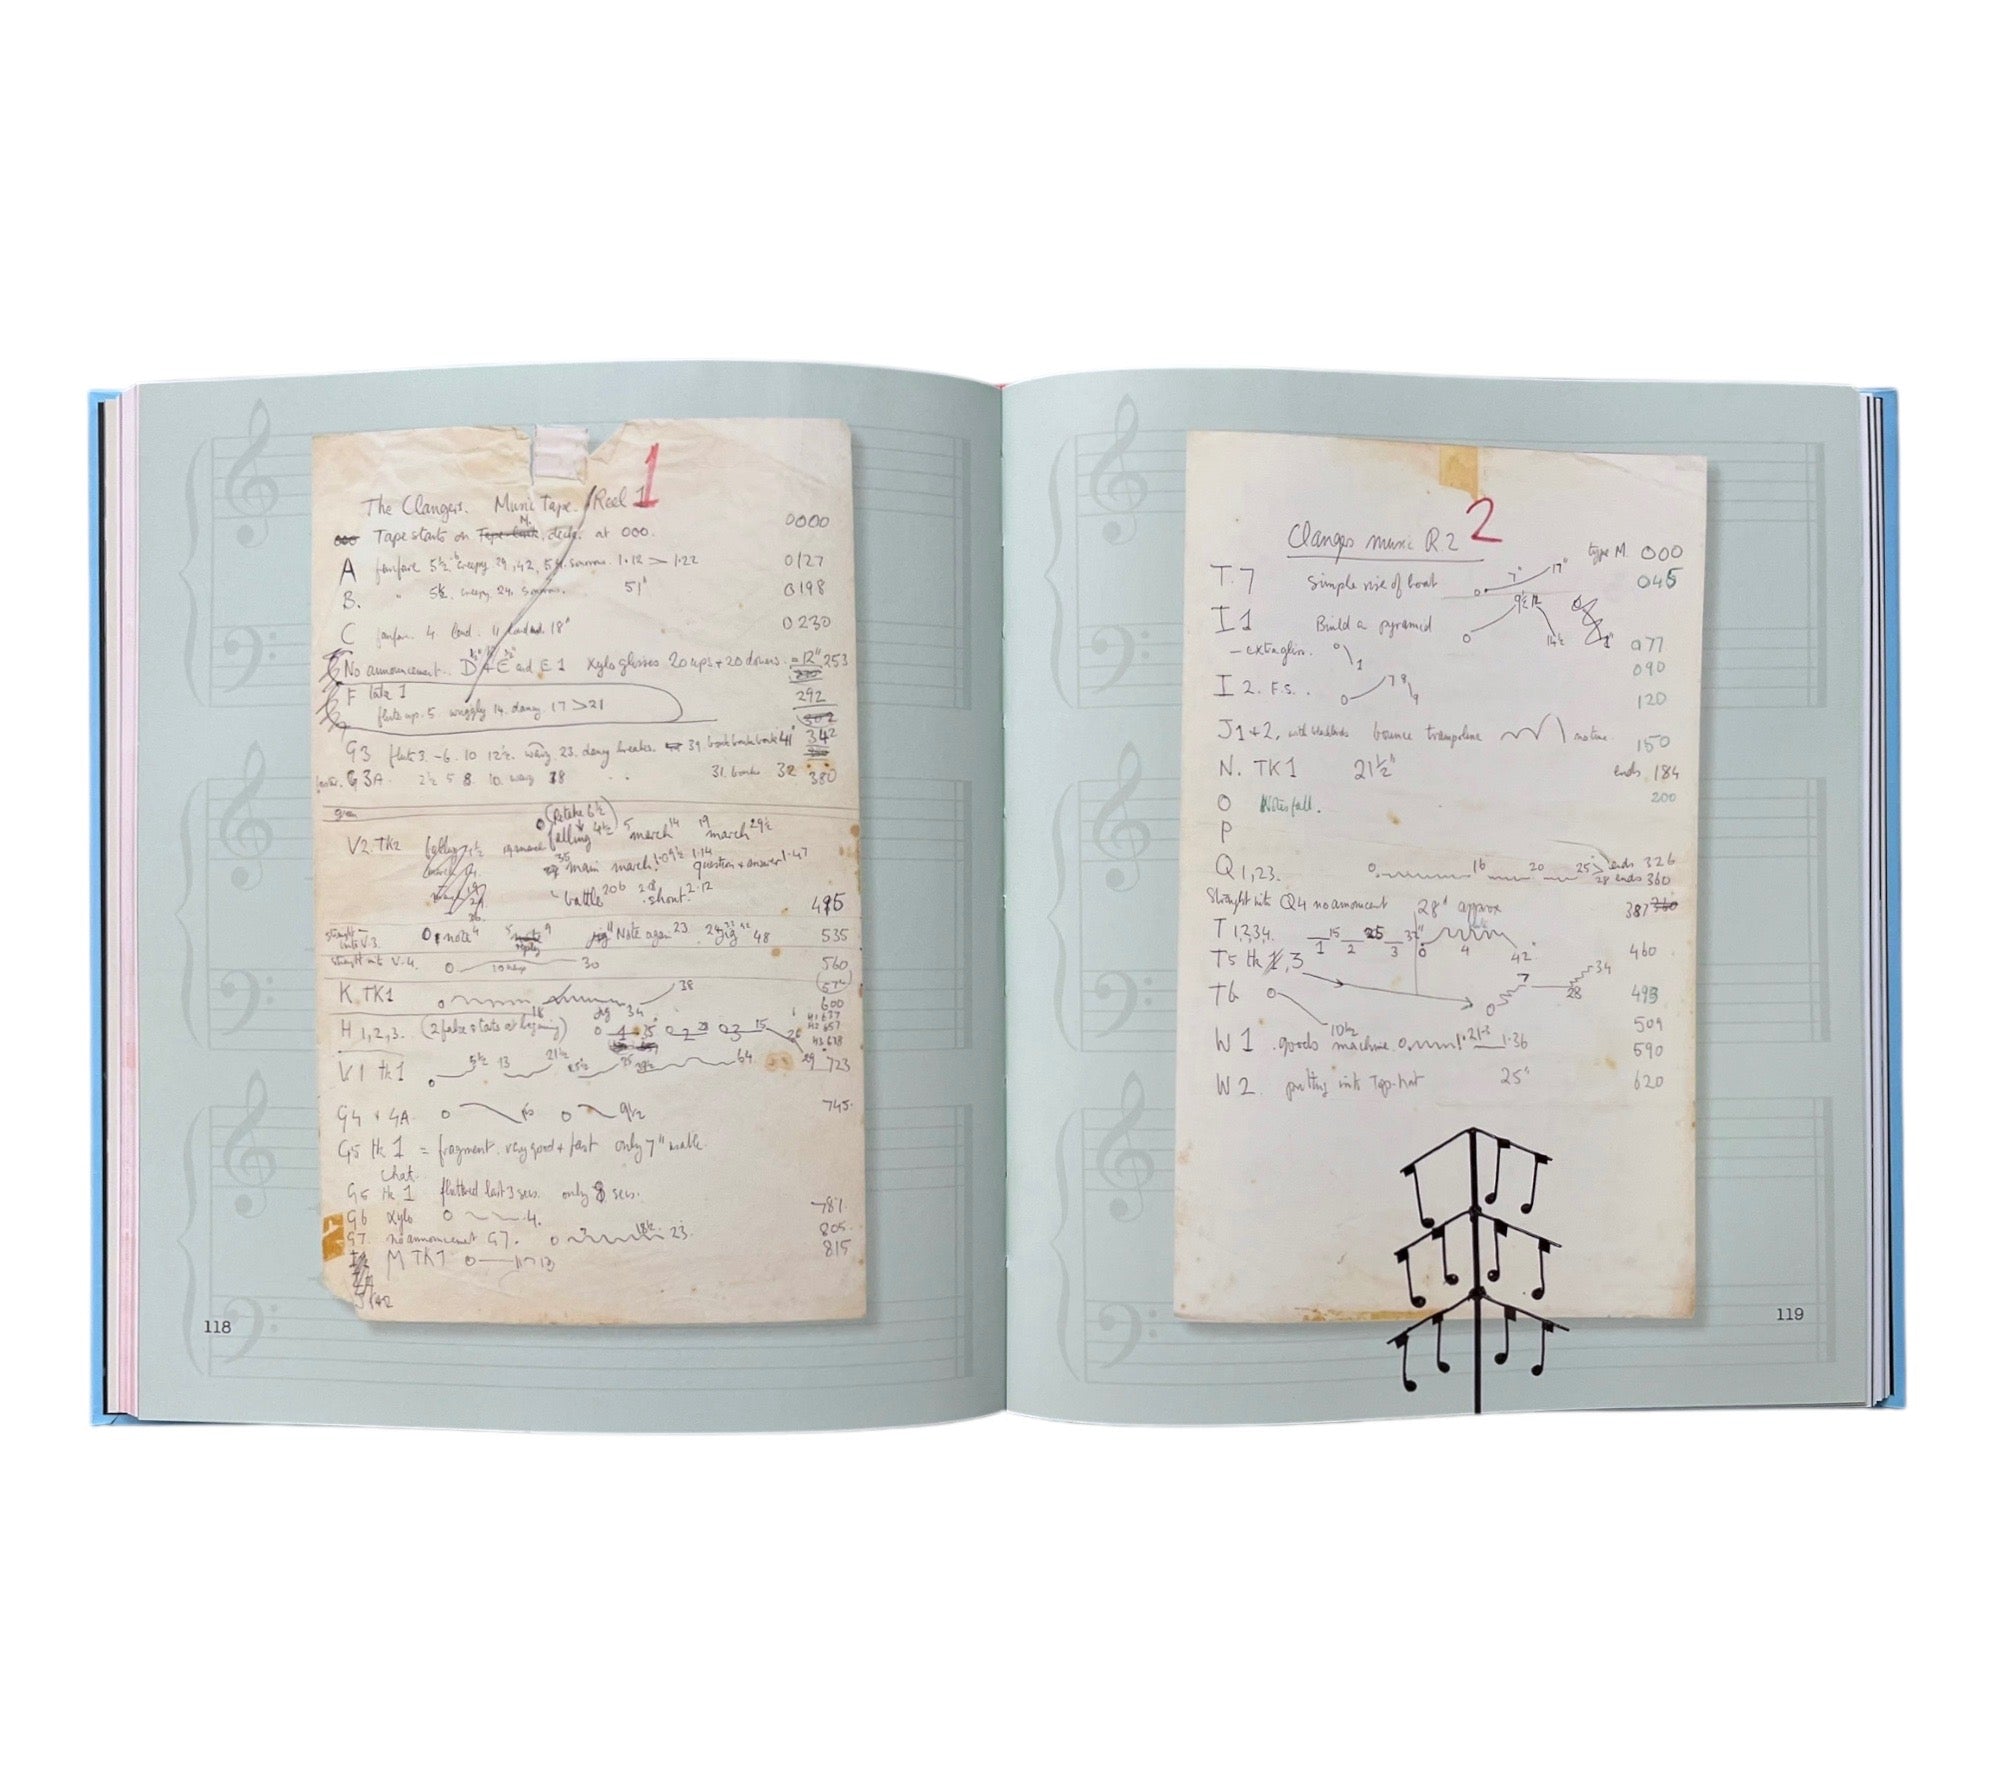 1
The Clangers. Music Tape. Reel 1
000 Tape starts on M. deck. at 000. 0000
A fanfare 5½. creepy. 29, 42, 59. 1·12 > 1·22 0127
B. " 5½. creepy 24. 51" 0198
C fanfare. 4 loud. 11 18" 0230
No announcement. D + E and E1 Xylo glisses 20 ups + 20 downs. 12" 253
F take 1 292
flute up. 5. wiggly 14. dancy. 17 > 21 302
G3 flute 3. - 6. 10 12½. wavy. 23. dancy breaks. 39 41 342
G3A. 2½ 5 8. 10. wavy 18 31. 32 380
V2. TK2 falling 4½ 5 march 14 19 march 29½
(Retake 6½)
35 main march. 1·09½ 1·14 question + answer 1·47
battle 206 208 shout. 2·12 495
straight into V.3. 0 note 4 5 9 jig 11 Note again 23. jig 48 535
straight into V.4. 0 30 560
K. TK1 0 18 jig 34 38 600
H 1, 2, 3. (2 false starts at begining) 0 1 15 0 2 0 3 15
V1 tk1 0 5½ 13 21½ 25½ 64 723
G4 + 4A 0 0 9½ 745·
G5 tk 1 = fragment. very good + fast only 7" usable.
chat.
G5 tk 1 fluttered last 3 secs. only 8 secs.
G6 xylo 0 4. 781.
G7. no announcement G7. 0 18½ 23. 805.
M TK1 0 13 815
J 1+2
118
2
Clangers music R.2 type M. 000
T. 7 Simple rise of boat 0 7" 17" 045
I 1 Build a pyramid 0 9½ 12 14½ 077
- extra gliss. 0 1 090
I 2. F.S.. 0 7 8 9 120
J1+2, with bounce trampoline no time. 150
N. TK1 21½" ends 184
O Notes fall. 200
P
Q 1, 2 3. 0 16 20 25 ends 326
28 ends 360
Straight into Q4 no announcement 28" approx 387 360
T 1, 2, 3, 4. 1 15 2 25 3 32" 0 4 42 460
T5 tk 1, 3 0 7 28 34
T6 0 10½ 493
509
W 1 . goods machine. 0 1·21·3 1·36 590
W 2. putting into Top-hat 25" 620
119